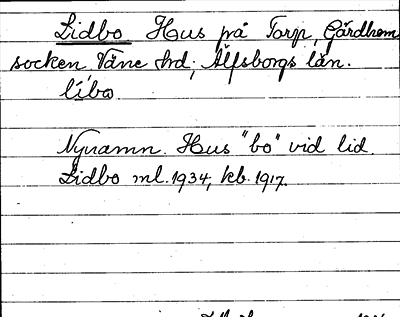 Lidbo Hus på Torp, Gärdhem
socken Väne hd; Älfsborgs län.
li´bo
Nynamn. Hus "bo" vid lid.
Lidbo ml. 1934, kb. 1917.